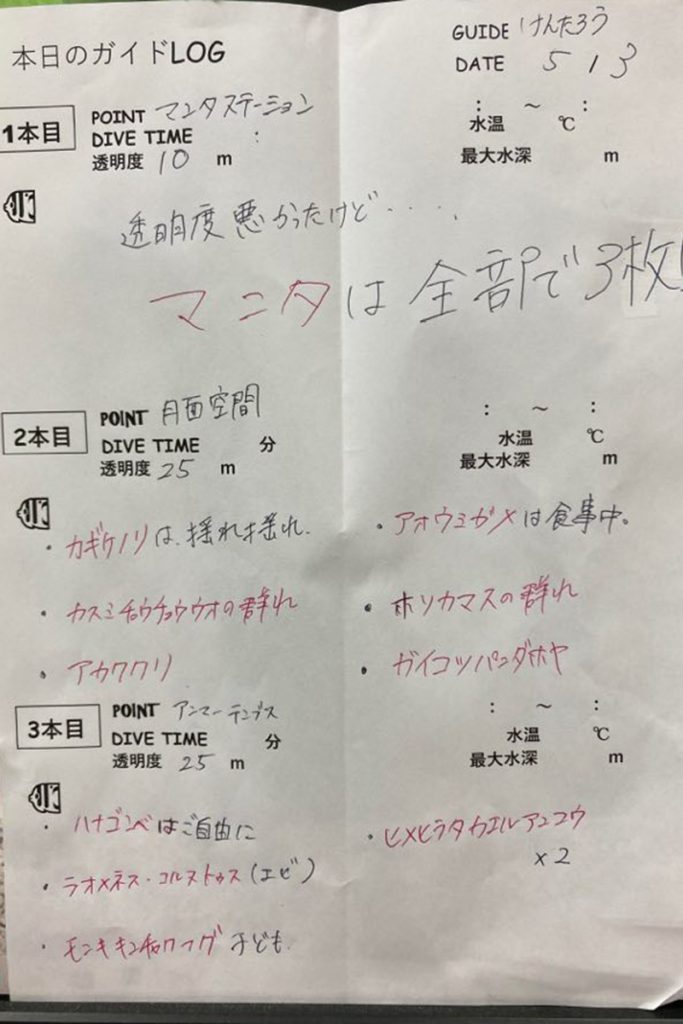 本日のガイドLOG
GUIDE けんたろう
DATE 5 1 3
1本目
POINT マンタステーション
DIVE TIME :
透明度 10 m
: ~ :
水温 ℃
最大水深 m
透明度悪かったけど・・・・、
マンタは全部で3枚!
2本目
POINT 月面空間
DIVE TIME 分
透明度 25 m
: ~ :
水温 ℃
最大水深 m
・カギケノリは、揺れ揺れ.
・カスミチョウチョウウオの群れ
・アカククリ
・アオウミガメは食事中。
・ホソカマスの群れ
・ガイコツパンダホヤ
3本目
POINT アンマーテンブス
DIVE TIME 分
透明度 25 m
: ~ :
水温 ℃
最大水深 m
・ハナゴンベはご自由に
・ラオメネス・コルヌトゥス(エビ)
・モンキキンチャクフグ 子ども.
・ヒメヒラタカエルアンコウ
x2